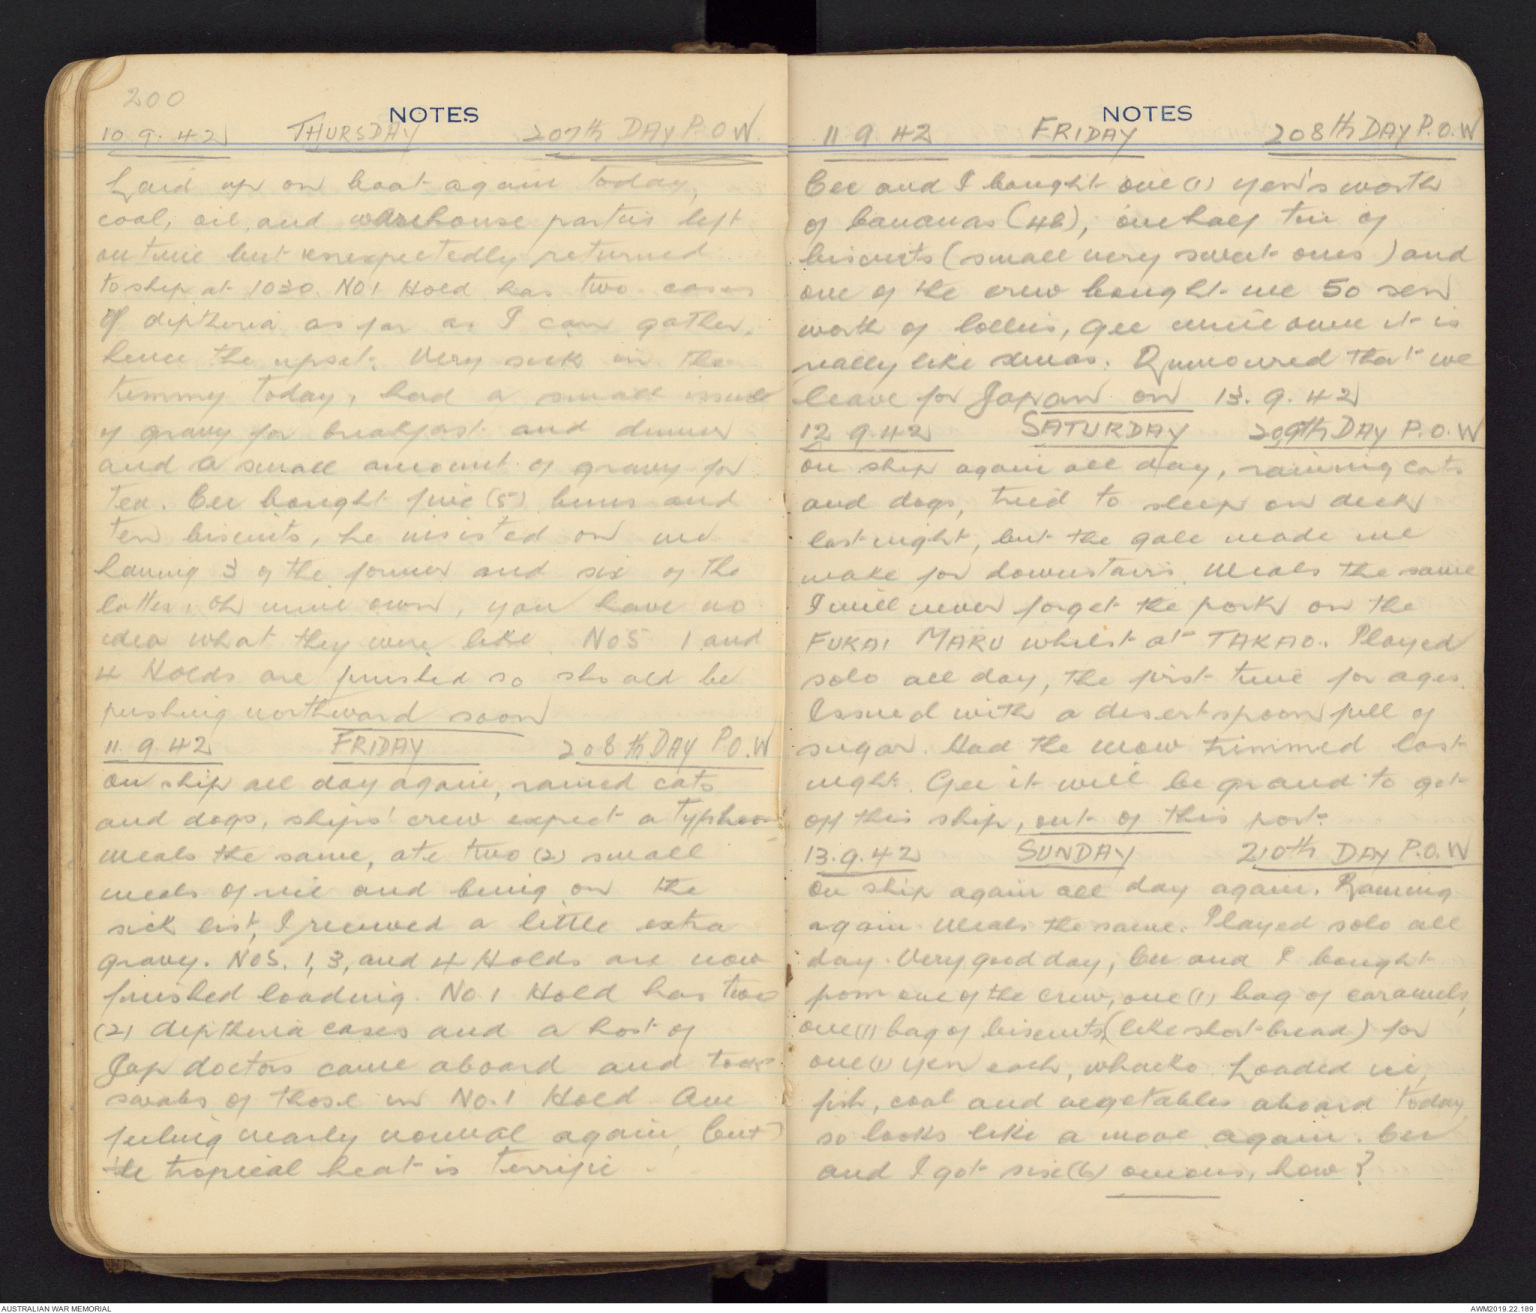 200
NOTES
10.9.42 THURSDAY 207th DAY P.O.W.
Laid up on boat again today,
coal, oil, and warehouse parties left
on time but unexpectedly returned
to ship at 1030. NO1 Hold has two cases
of diptheria as far as I can gather,
hence the upset. Very sick in the
tummy today, had a small issue
of gravy for breakfast and dinner
and a small amount of gravy for
tea. Cec bought five (5) buns and
ten biscuits, he insisted on me
having 3 of the former and six of the
latter, oh mine own, you have no
idea what they were like. NOS 1 and
4 Holds are finished so should be
pushing northward soon
11.9.42 FRIDAY 208th DAY P.O.W
On ship all day again, rained cats
and dogs, ships' crew expect a typhoon
meals the same, ate two (2) small
meals of rice and being on the
sick list, I received a little extra
gravy. NOS. 1, 3, and 4 Holds are now
finished loading. No 1 Hold has two
(2) diptheria cases and a host of
Jap doctors came aboard and took
swabs of those in No.1 Hold. Am
feeling nearly normal again, but
the tropical heat is terrific.
NOTES
11.9.42 FRIDAY 208th DAY P.O.W
Cec and I bought one (1) yen's worth
of bananas (46), one half tin of
biscuits (small very sweet ones) and
one of the crew bought me 50 sen
worth of lollies, Gee mine own it is
really like xmas. Rumoured that we
leave for Japan on 13.9.42
12 9.42 SATURDAY 209th DAY P.O.W
On ship again all day, raining cats
and dogs, tried to sleep on deck
last night, but the gale made me
make for downstairs. Meals the same
I will never forget the pork on the
FUKAI MARU whilst at TAKAO. Played
solo all day, the first time for ages.
Issued with a desertspoon full of
sugar. Had the mow trimmed last
night. Gee it will be grand to get
off this ship, out of this port.
13.9.42 SUNDAY 210th DAY P.O.W
On ship again all day again. Raining
again. Meals the same. Played solo all
day. Very good day, Cec and I bought
from one of the crew, one (1) bag of caramels,
one (1) bag of biscuits, (like short-bread) for
one (1) yen each, whacko. Loaded ice,
fish, coal and vegetables aboard today,
so looks like a move again. Cec
and I got six (6) onions, how?
AUSTRALIAN WAR MEMORIAL
AWM2019.22.189